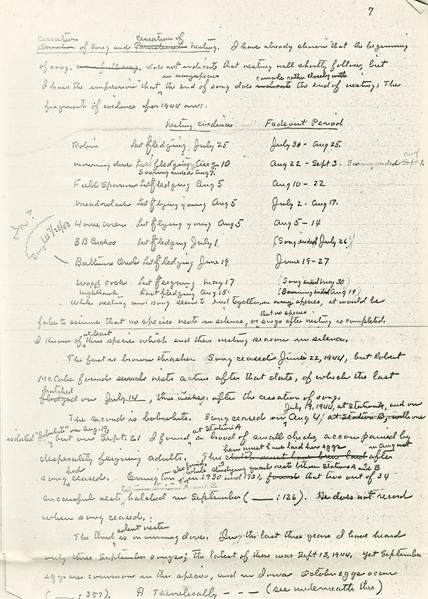 7
cessation cessation of
of song and nesting. I have already shown that the beginning
of song, does not indicate that nesting will shortly follow, but
in many species coincide rather closely with
I have the impression that the end of song does the end of nesting. The
fragments of evidence for 1944 are:
Nesting evidence Fadeout Period
Robin Last fledging, July 25 July 30 - Aug 25.
Mourning dove Last fledging Aug 10 Aug 22 - Sept 3.
Field Sparrow Last fledging Aug 5 Aug 10 - 22
Meadowlark Last flying young Aug 5 July 2 - Aug 17.
House Wren Last flying young Aug 5 Aug 5 - 14
BB Cuckoo Last fledging July 1 (Song ended July 26)
Baltimore Oriole Last fledging June 19 June 19 - 27
Woodcock May 17 (Song ended May 30)
Nighthawk Last fledging Aug 15. (Booming ended Aug 19)
While nesting and song seem to end together in many species, it would be
that no species
false to assume that no species nests in silence, or sings after nesting is completed.
at least
I know of three species which end their nesting season in silence.
The first is brown thrasher. Song ceased June 22, 1944, but Robert
McCabe found nests active after that date, of which the last
hatched
on July 14, three weeks after the cessation of song.
July 19, 1944, at Station A, and on
The second is bobwhite. Song ceased on Aug 4 at Station B, with one
isolated "bobwhite" on Aug 19, but on Sept. 21 I found, at Station A a brood of small chicks accompanied by
must have hatched
desperately feigning adults. This after
had
song ceased. Errington in 1930 and 1931, while studying quail nests between Stations A and B
found that two out of 34
successful nests hatched in September ( ___ : 126). He does not record
when song ceased.
silent nester
The third is mourning dove. In the last three years I have heard
only three September songs; the latest of these was Sept 13, 1944. Yet September
eggs are common in the species, and in Iowa October eggs occur
( ___ : 357). A Theoretically - - - (see underneath this)